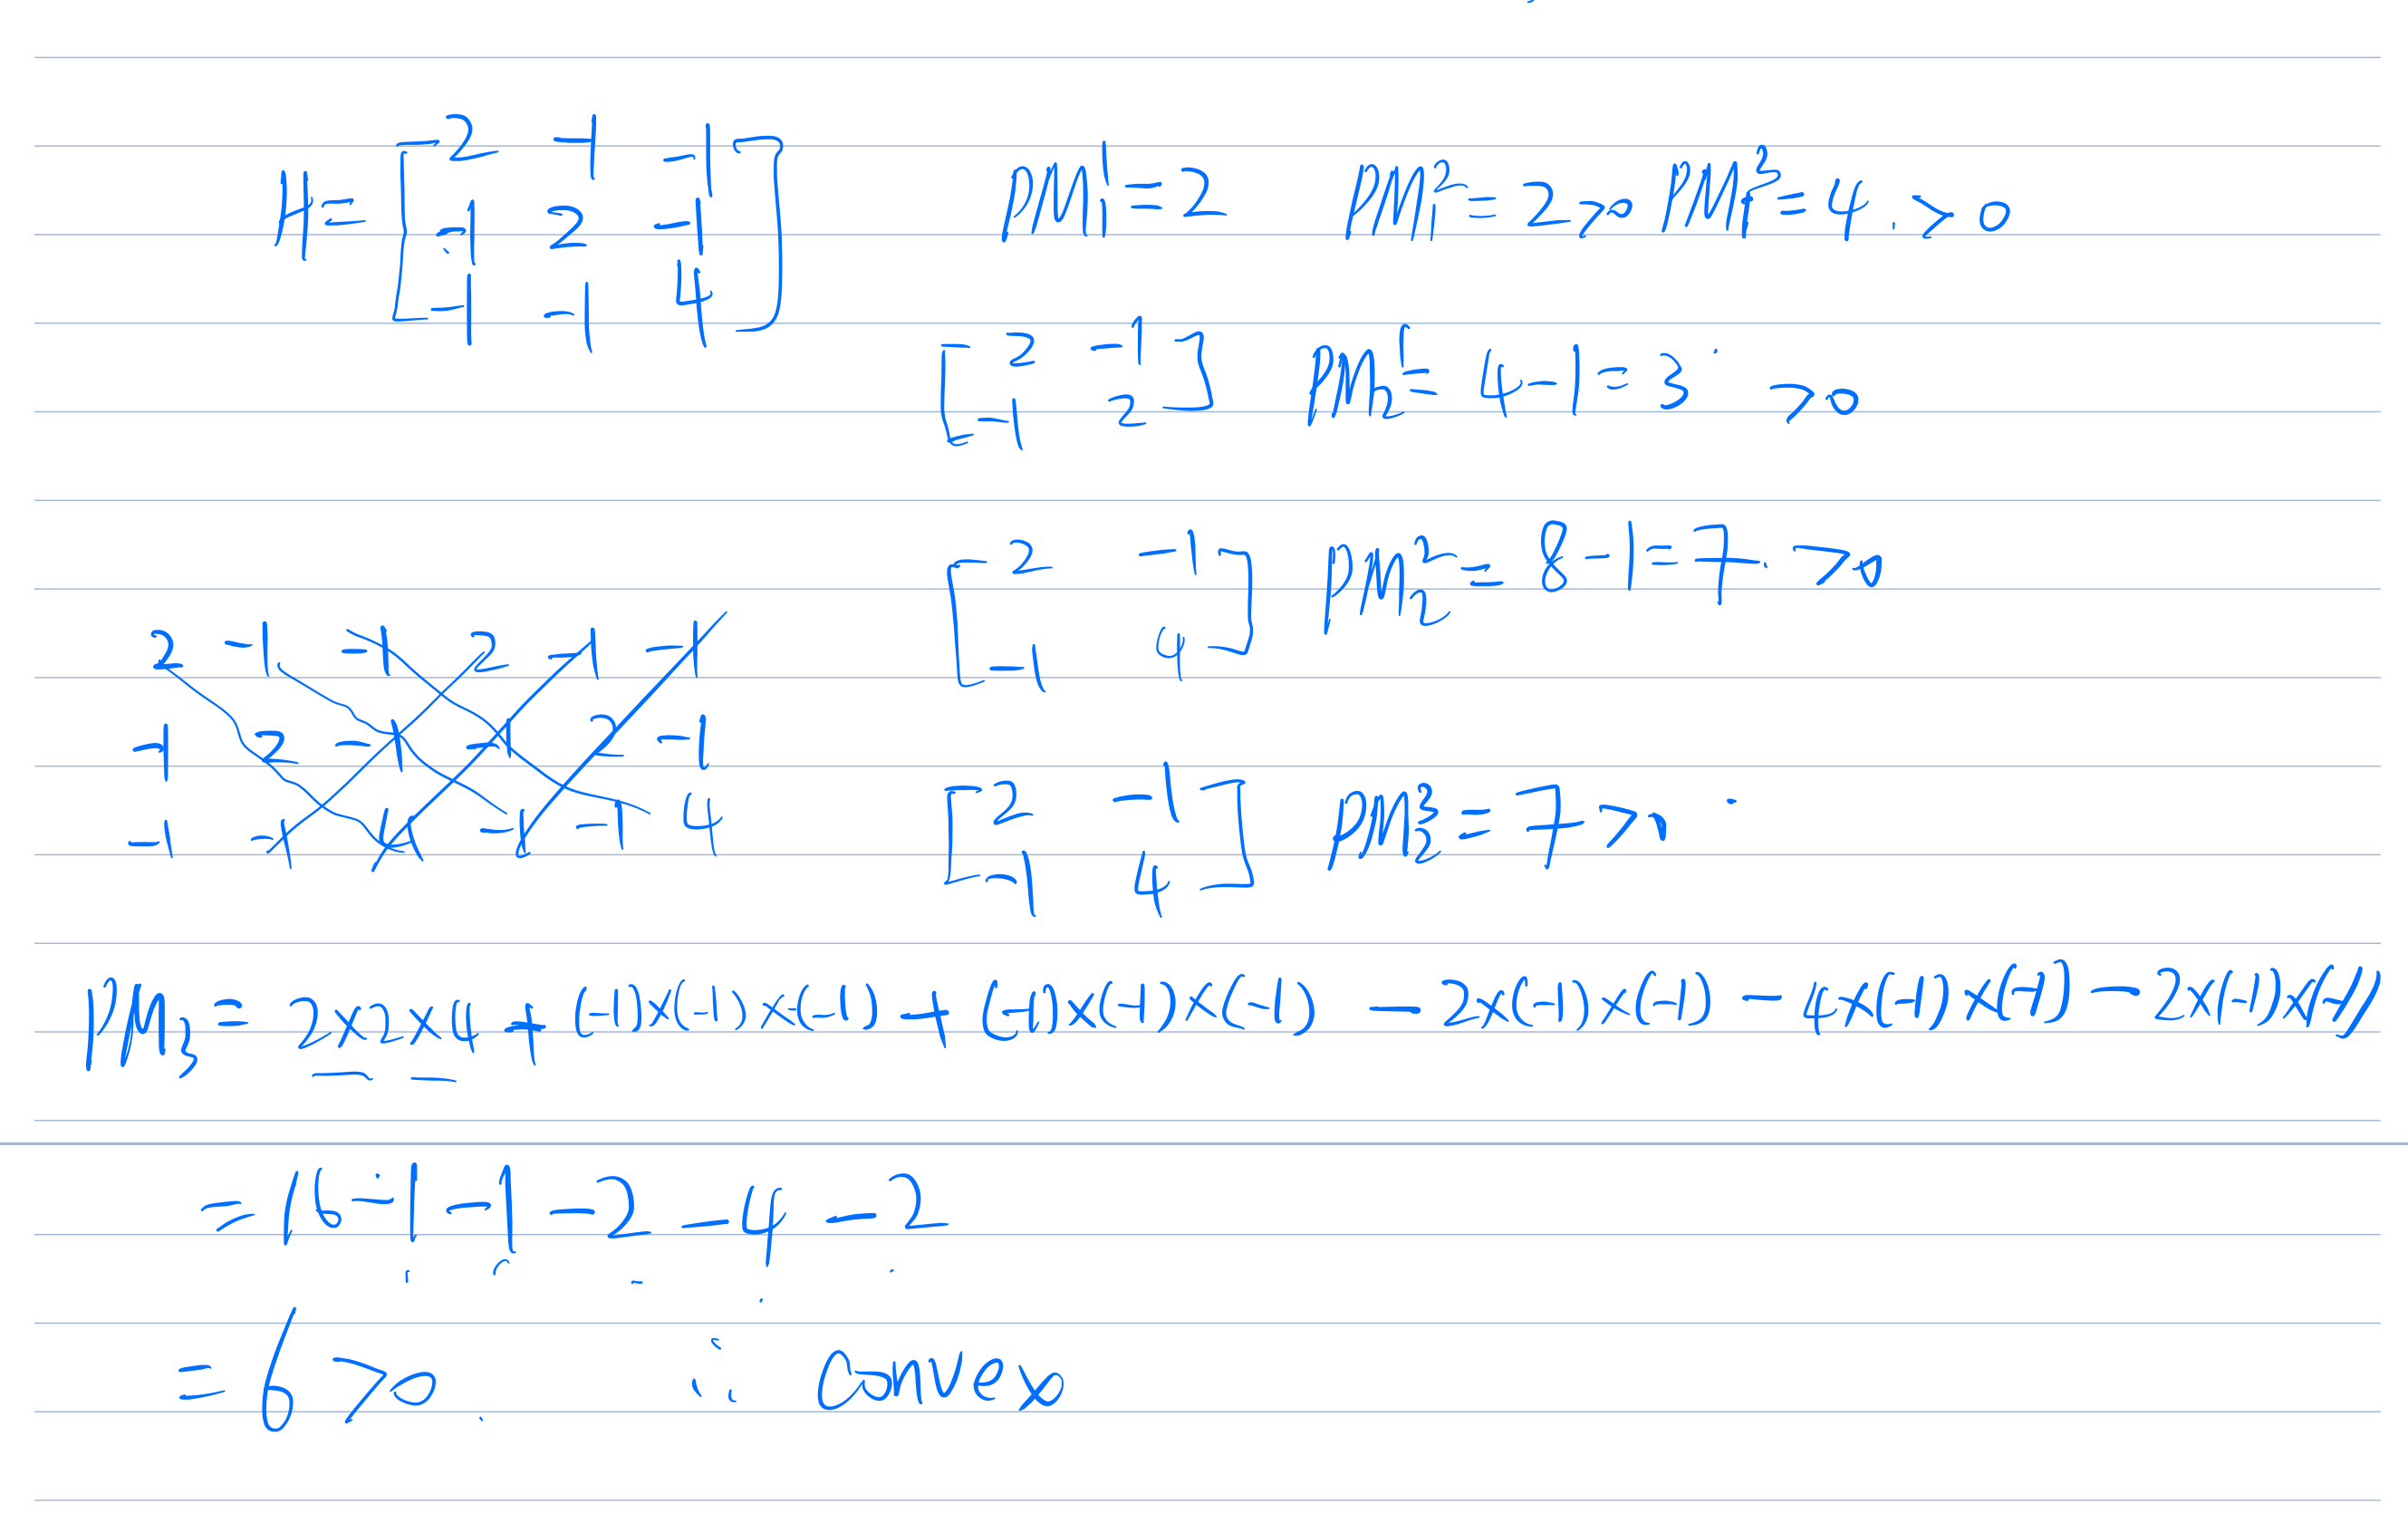 H = [ 2 -1 -1
-1 2 -1
-1 -1 4 ]
PM₁¹ = 2 PM₁² = 2 > 0 PM₁³ = 4 . > 0
[ 2 -1
-1 2 ] PM₂¹ = 4 - 1 = 3 > 0
[ 2 -1
-1 4 ] PM₂² = 8 - 1 = 7 . > 0
[ 2 -1
-1 4 ] PM₂³ = 7 > 0
2 -1 -1 2 -1 -1
-1 2 -1 -1 2 -1
-1 -1 4 -1 -1 4
PM₃ = 2×2×4 + (-1)×(-1)×(-1) + (-1)×(-1)×(-1) - 2×(-1)×(-1) - 4×(-1)×(-1) - 2×(-1)×(-1)
= 16 - 1 - 1 - 2 - 4 - 2
= 6 > 0 . ∴ convex